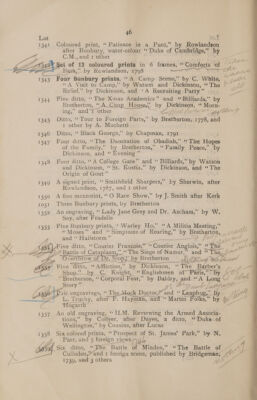 46
Lot
1341 Coloured print, "Patience in a Punt," by Rowlandson
after Bunbury, water-colour "Duke of Cambridge," by
C.M., and 1 other
1342 Set of 12 coloured prints in 6 frames, "Comforts of
Bath," by Rowlandson, 1798
1343 Four Bunbury prints, "A Camp Scene," by C. White,
"A Visit to Camp," by Watson and Dickinson, "The
Relief," by Dickinson, and "A Recruiting Party"
1344 Five ditto, "The Xmas Academics" and "Billiards," by
Bretherton, "A Camp House," by Dickinson, "Morn-
ing," and 1 other
1345 Ditto, "Tour to Foreign Parts," by Bretherton, 1778, and
1 other by A. Macbeth
1346 Ditto, "Black George," by Chapman, 1791
1347 Four ditto, "The Damnation of Obadiah," "The Hopes
of the Family," by Bretherton, "Family Peace," by
Dickinson, and "Evening"
1348 Four ditto, "A College Gate" and "Billiards," by Watson
and Dickinson, "St. Rostia," by Dickinson, and "The
Origin of Gout"
1349 A signed print, "Smithfield Sharpers," by Sherwin, after
Rowlandson, 1787, and 1 other
1350 A fine mezzotint, "O Rare Show," by J. Smith after Kerk
1351 Three Bunbury prints, by Bretherton
1352 An engraving, "Lady Jane Grey and Dr. Ascham," by W.
Say, after Fradelle
1353 Five Bunbury prints, "Warley Ho," "A Militia Meeting,"
"Moses" and "Simptoms of Rearing," by Bretherton,
and "Hailstorm"
1354 Five ditto, "Courier François," "Courier Anglois," "The
Battle of Cataplasm," "The Siege of Namur" and "The
Overthrow of Dr. Slop," by Bretherton
1355 Five ditto, "Affection," by Dickinson, "The Barber's
Shop," by C. Knight, "Englishman at Paris," by
Bretherton, "Corporal Four," by Dalley, and "A Long
Story"
1356 Two engravings, "The Mock Doctor," and "Leapfrog," by
L. Truchy, after F. Haymans, and "Martin Folks," by
Hogarth
1357 An old engraving, "H.M. Reviewing the Armed Associa-
tions," by Collyer, after Dayes, a ditto, "Duke of
Wellington," by Cousins, after Lucas
1358 Six coloured prints, "Prospect of St. James' Park," by N.
Parr, and 5 foreign views
1359 Six ditto, "The Battle of Minden," "The Battle of
Culloden," and 1 foreign scene, published by Bridgeman,
1739, and 3 others